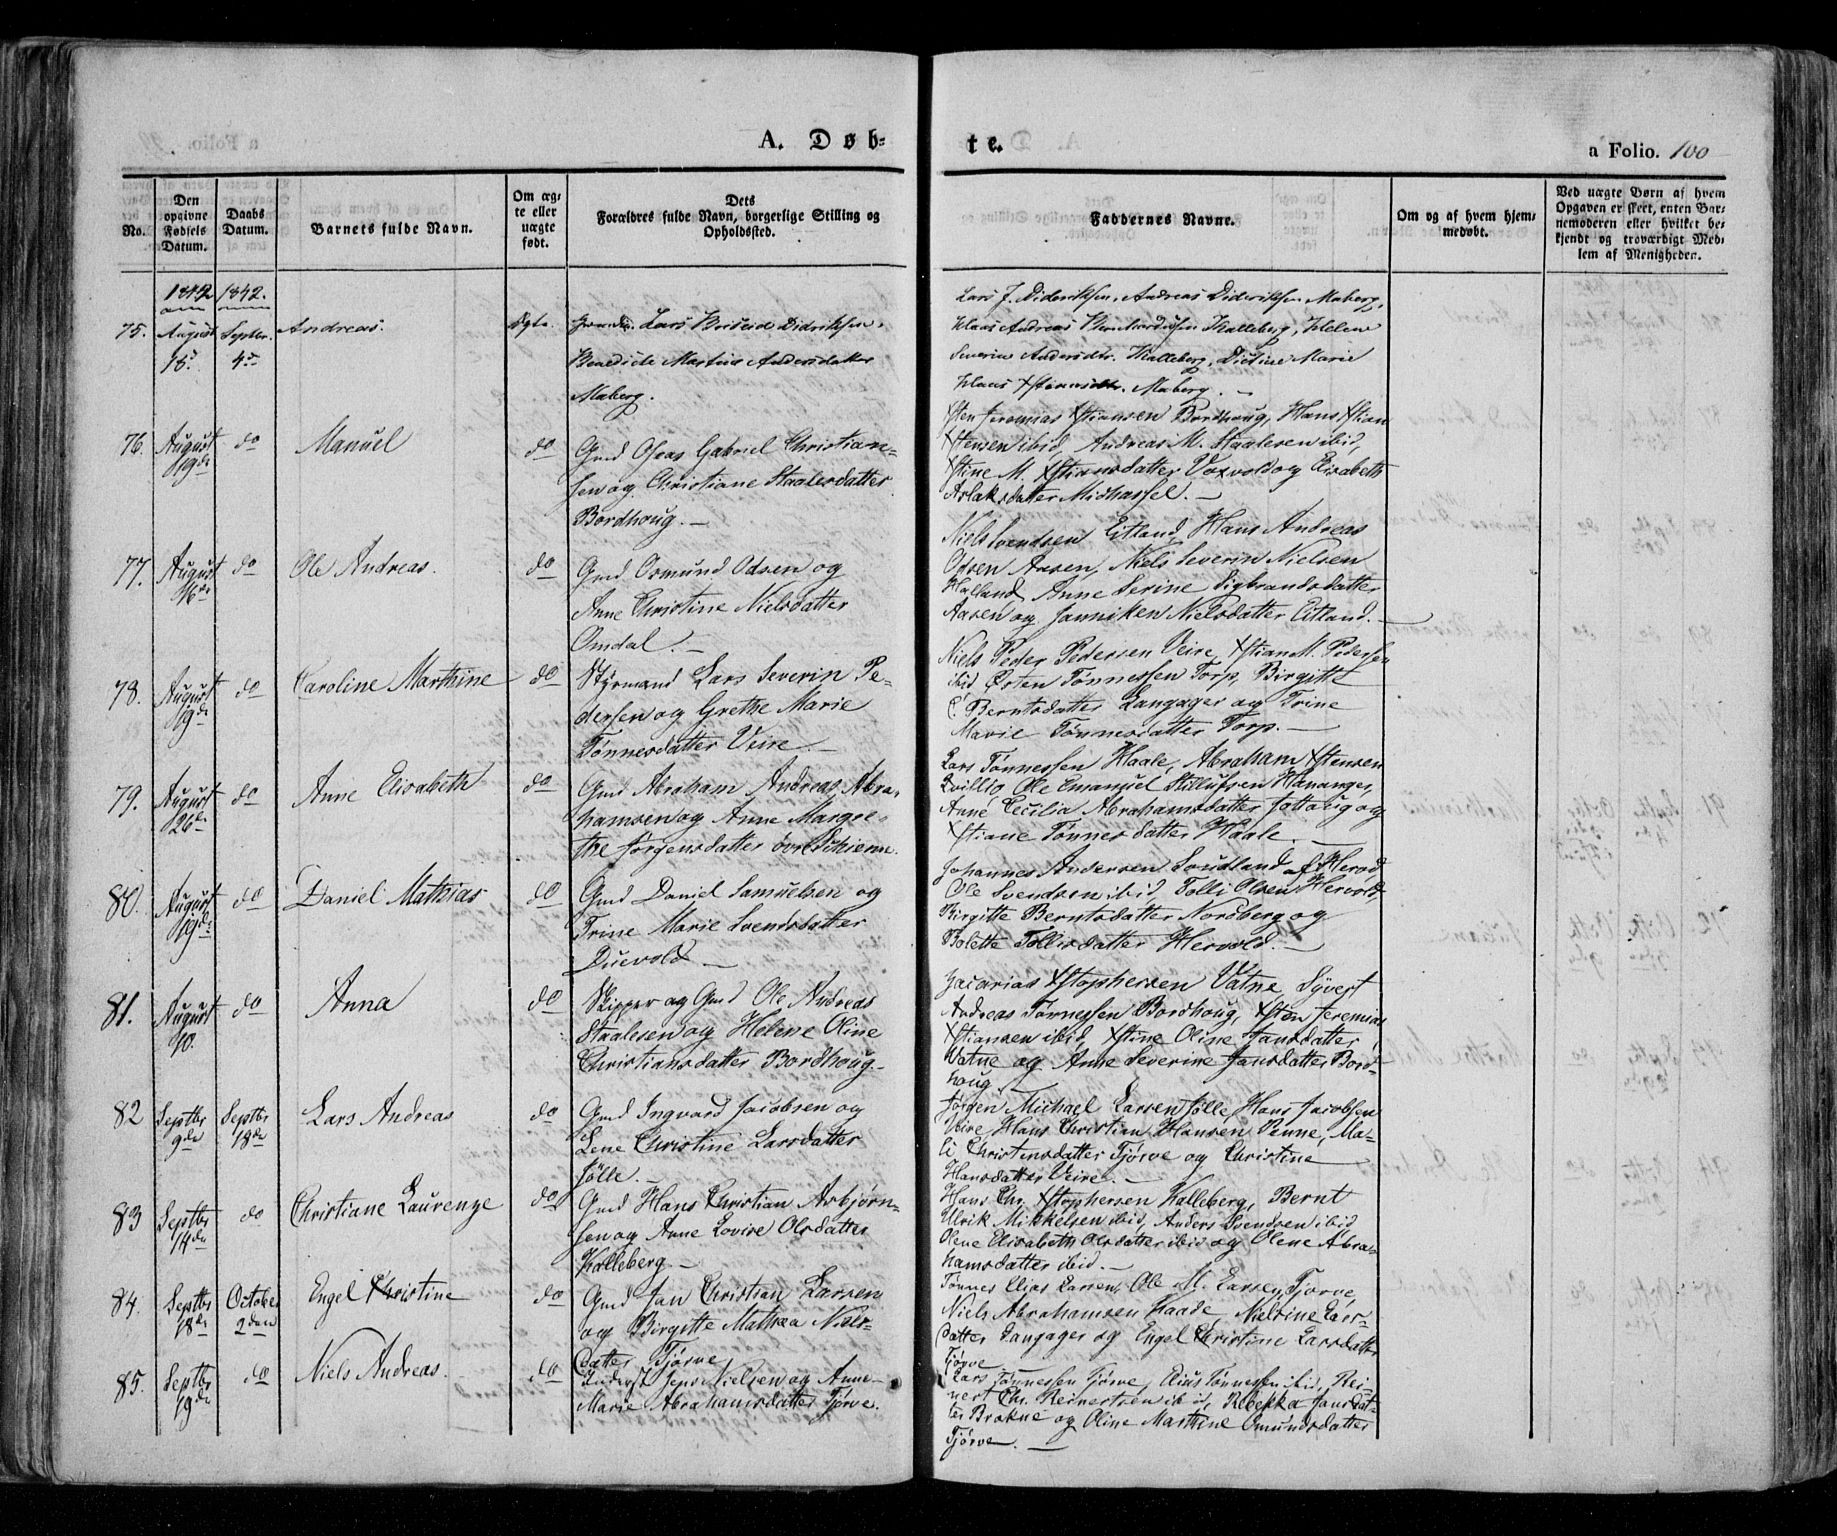 A. Døb-
te.
a Folio. 100
No.
Den opgivne Fødsels Datum.
Daabs Datum.
Barnets fulde Navn.
Om ægte eller uægte født.
Dets Forældres fulde Navn, borgerlige Stilling og Opholdssted.
Faddernes Navne.
Om og af hvem hjemmedøbt.
Ved uægte Børn af hvem Opgaven er skeet, enten Barnemoderen eller hvilket bekjendt og troværdigt Medlem af Menigheden.
1842 1842.
75. August 18de Septbr. 4de Andreas. Ægte
Lars Didriksen,
Benedicte Martine Andersdatter
Maberg.
Lars J. Dideriksen, Andreas Dideriksen Maberg,
Klaas Andreas Bernhardsen Kalleberg, Helene
Severine Andersdtr. Kalleberg, Marie
Klaas Maberg.
76. August 19de do Manuel do
Gmd Oseas Gabriel Christian-
sen og Christiane Staalesdatter
Bordhoug. —
Xsten Jeremias Xstiansen Bordhoug, Hans Xstian
Xstensen ibid, Andreas M. Staalesen ibid,
Xstine M. Xstiansdatter Voxvold og Elisabeth
Aslaksdatter Midhassel. —
77. August 16de do Ole Andreas. do
Gmd Osmund Odsen og
Anne Christine Nielsdatter
Omdal. —
Niels Svendsen Eitland, Hans Andreas
Odsen Aasen, Niels Severin Nielsen
Halland, Anne Serine Sigbrandsdatter
Aasen og Janniken Nielsdatter Eitland. —
78. August 19de do Caroline Marthine do
Styrmand Lars Severin Pe-
dersen og Grethe Marie
Tønnesdatter Veire —
Niels Peder Pedersen Veire, Xstian M. Pedersen
ibid Østen Tønnessen Torp, Birgitte
C. Berntsdatter Langager og Trine
Marie Tønnesdatter Torp. —
79. August 26de do Anne Elisabeth do
Gmd Abraham Andreas Abra-
hamsen og Anne Margre-
the Jørgensdatter øvre Skienn.
Lars Tønnessen Haale, Abraham Xstensen
Ole Emanuel Hananger,
Anne Cecilia Abrahamsdatter og
Xstiane Tønnesdatter Haale. —
80. August 19de do Daniel Mathias do
Gmd Daniel Samuelsen og
Trine Marie Svendsdatter
Duevold —
Johannes Andersen Hervold
Ole Svendsen ibid, Tolli Olsen Hervold,
Birgitte Berntsdatter Nordberg og
Bolette Tollisdatter Hervold. —
81. August 10. do Anna do
Skipper og Gmd Ole Andreas
Staalesen og Helene Oline
Christiansdatter Bordhoug. —
Zacarias Xstophersen Vatne, Syvert
Andreas Tønnessen Bordhoug, Xsten Jeremias
Xstiansen ibid, Xstine Oline Hansdatter
Vatne og Anne Severine Jansdatter Bord-
houg
82 Septbr 9de Septbr 18de Lars Andreas do
Gmd Ingvard Jacobsen og
Lene Christine Larsdatter
Jølle. —
Jørgen Michael Larsen Jølle, Hans Jacobsen
Veire, Hans Christian Hansen Penne, Ma-
li Christensdatter Tjørve og Christine
Hansdatter Veire. —
83 Septbr 14de do Christiane Laurenze do
Gmd Hans Christian Asbjørn-
sen og Anne Lovise Olsdatter
Kalleberg —
Hans Chr. Xstophersen Kalleberg, Bernt
Ulrik Mikkelsen ibid, Anders Svendsen ibid
Olene Elisabeth Olsdatter ibid og Olene Abra-
hamsdatter ibid. —
84. Septbr 18de October 2den Engel Christine do
Gmd Jan Christian Larsen
og Birgitte Mathea Niels-
datter Tjørve
Tønnes Elias Larsen, Ole M. Larsen Tjørve,
Niels Abrahamsen Haade, Nelsine Lars-
datter Langager og Engel Christine Larsdatter
Tjørve
85. Septbr 19de do Niels Andreas. do
Inderst Jens Nielsen og Anne
Marie Abrahamsdatter Tjørve.
Lars Tønnessen Tjørve, Elias Tønnessen ibid, Rei-
nert Chr. Reinertsen ibid, Rebekka Jansdat-
ter Brekne og Oline Marthine Omundsdatter
Tjørve. —